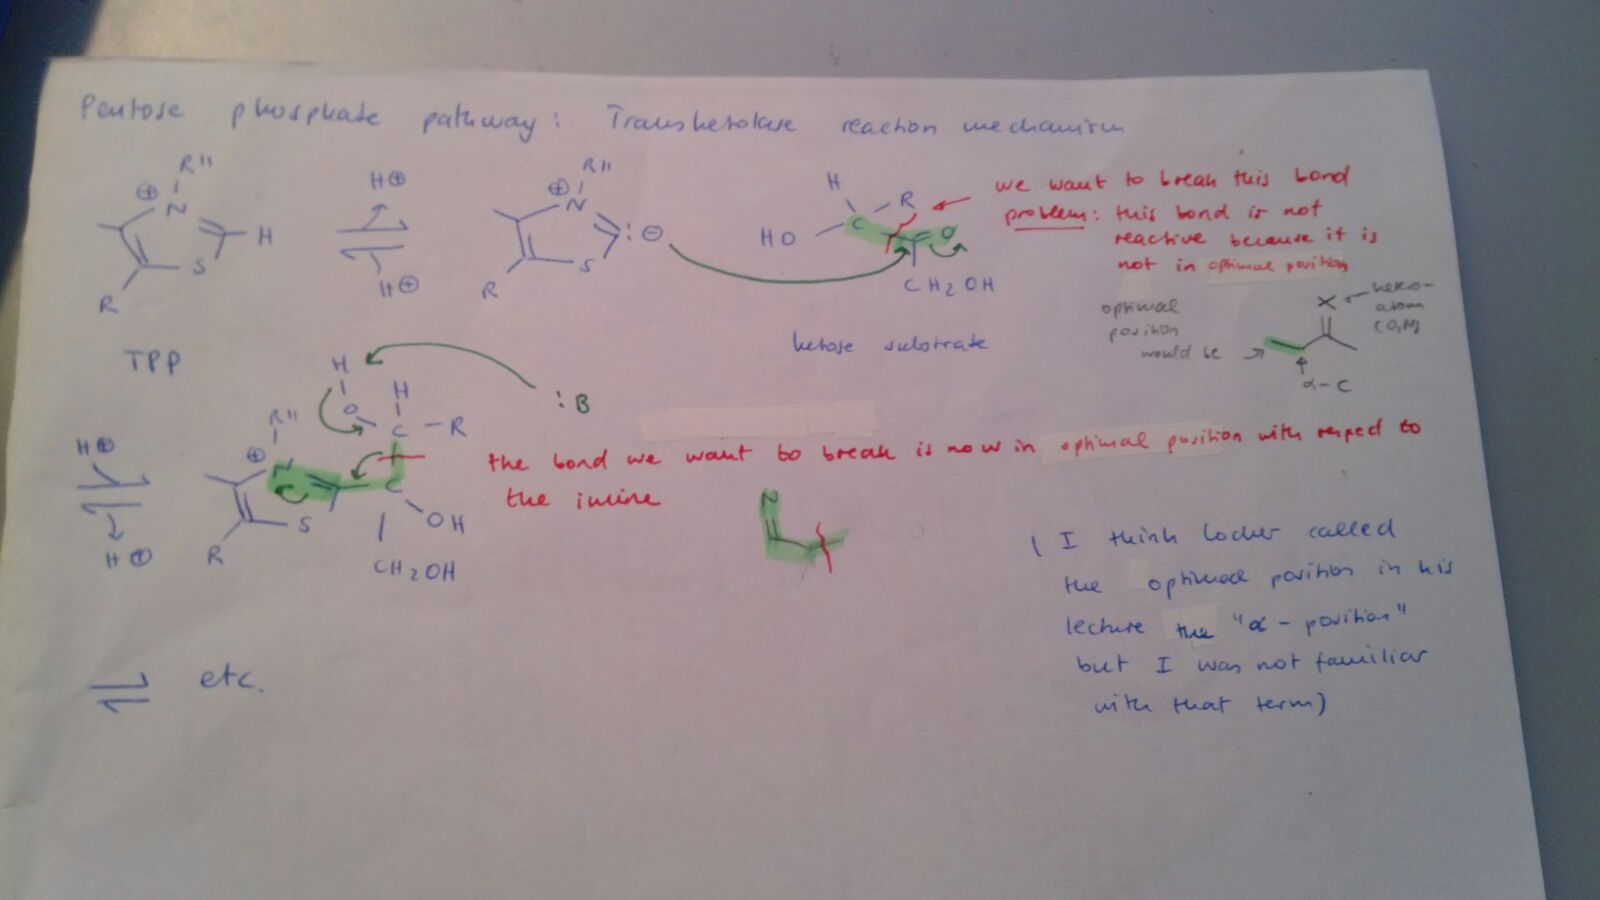 Pentose phosphate pathway: Transketolase reaction mechanism
R" H⊕ R" H R
⊕ N H S R
H⊕
⊕ N :⊖ S R
HO C O
CH2OH
we want to break this bond
problem: this bond is not
reactive because it is
not in optimal position
optimal
position
would be
X
hetero-
atom
(O,N)
α-C
TPP
ketose substrate
H
O
H
C - R
:B
H⊕
H⊕
R"
⊕ N
S
R
C
OH
CH2OH
the bond we want to break is now in optimal position with respect to
the imine
N
(I think Locher called
the optimal position in his
lecture the "α-position"
but I was not familiar
with that term)
etc.